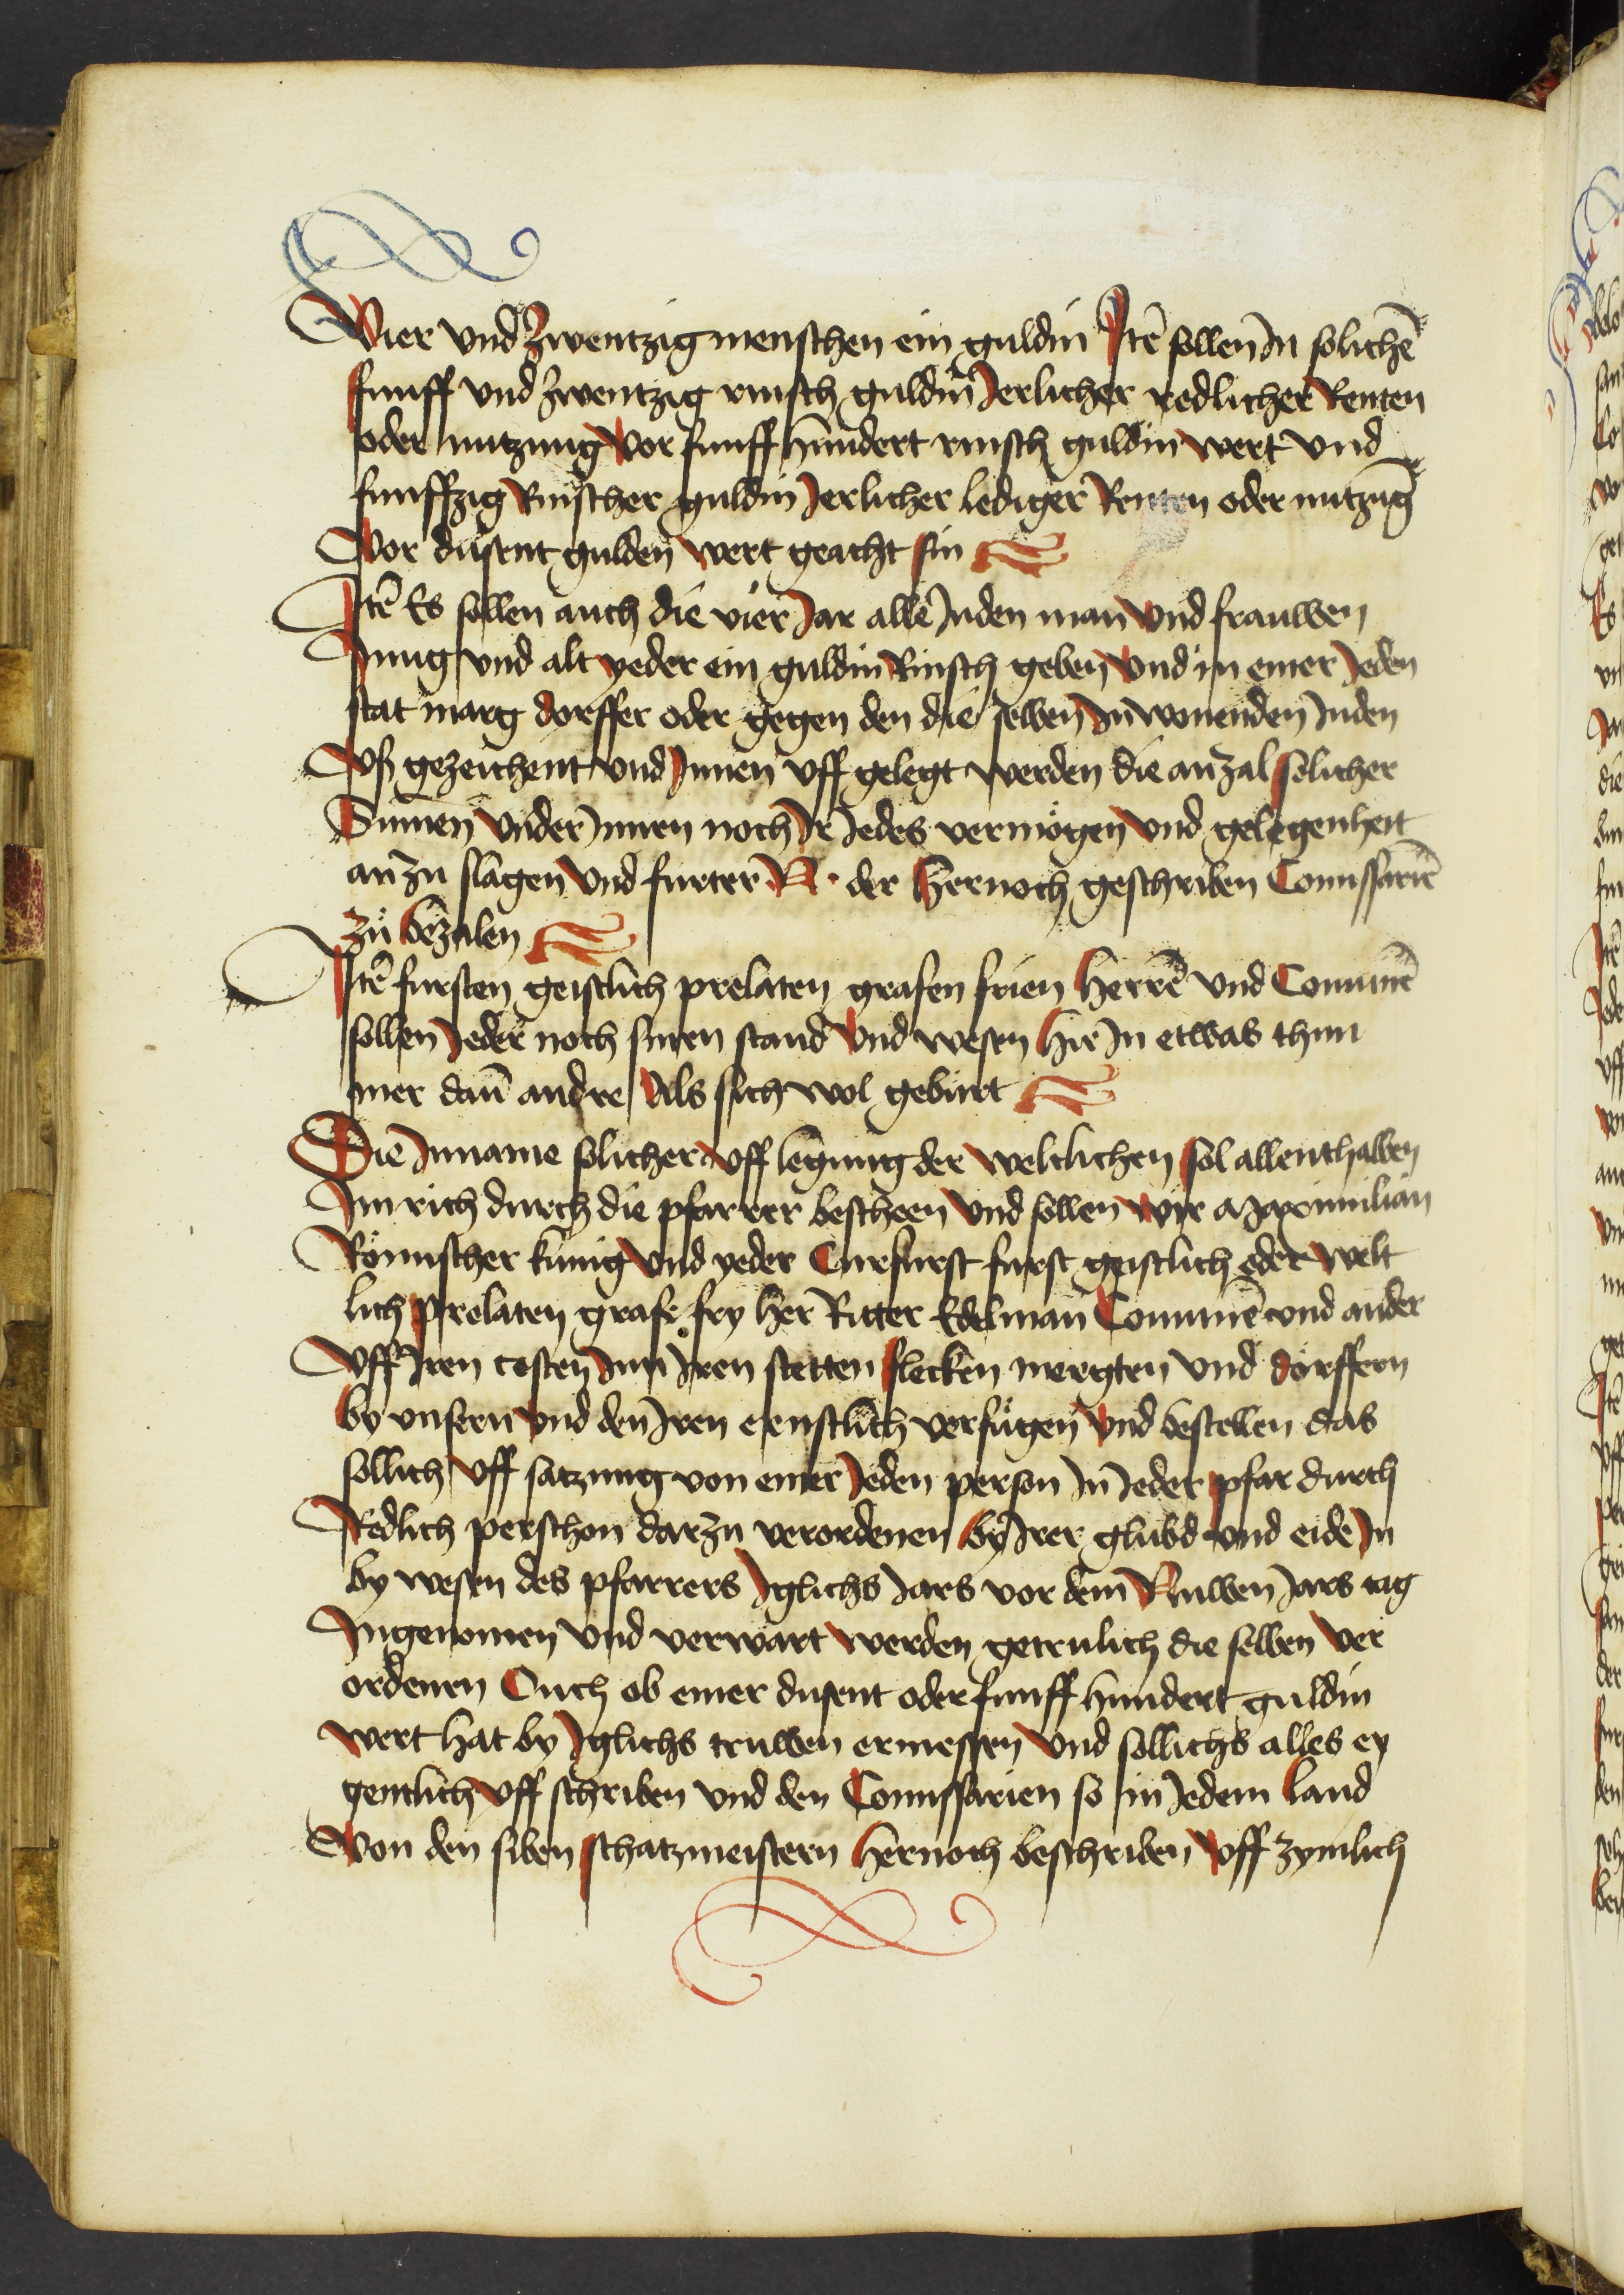 Vier und zwentzig menschen ein guldin Itē sollen In solichē
funff und zwentzig rinsch guldin Jerlicher redlicher Renten
oder nutzung vor funff hundert rinsch guldin wert und
funffzig Rinscher guldin Jerlicher lediger Renten oder nutzūg
vor dusent gulden wert geacht sin
Itē Es sollen auch die vier Jar alle Juden man und frauwen
Jung und alt yeder ein guldin Rinsch geben und in einer Jeden
stat marg dorffer oder gegen den die selben In wonenden Juden
vß gezeichent und Innen uff gelegt werden die anzal solicher
Summen under Innen noch Ir Jedes vermögen und gelegenheit
an zu slagen und furter N. der hernoch geschriben Comissariē
zů bezalen
Itē fursten geistlich prelaten grafen frien herrē und Comunē
sollen Jeder noch sinen stand und wesen hie In etwas thun
mer dan̄ andre als sich wol gebürt
Die Inname solicher uff legung der weltlichen sol allenthalben
Im rich durch die pfarrer bescheen und sollen wir Maximilian
Römischer kunig und yeder Curfurst furst geistlich oder welt
lich prelaten grafe fry her Ritter Edelman Comunē und ander
uff Iren costen Inn Iren stetten flecken mergten und dörffern
by unsern und den Iren ernstlich verfůgen und bestellen das
sollich uff satzung von einer Jeden person In Jeder pfar durch
Redlich perschon darzu verordenen by Irer glubd und eide In
by wesen des pfarrers Iglichs Jars vor dem Nuwen Jars tag
Ingenomen und verwart werden getrulich die selben ver
ordenen Ouch ob einer dusent oder funff hundert guldin
wert hat by Iglichs truwen ermessen und sollichs alles ey
gentlich uff schriben und den Comissarien so in Jedem land
von den siben schatzmeistern hernoch beschriben uff zymlich